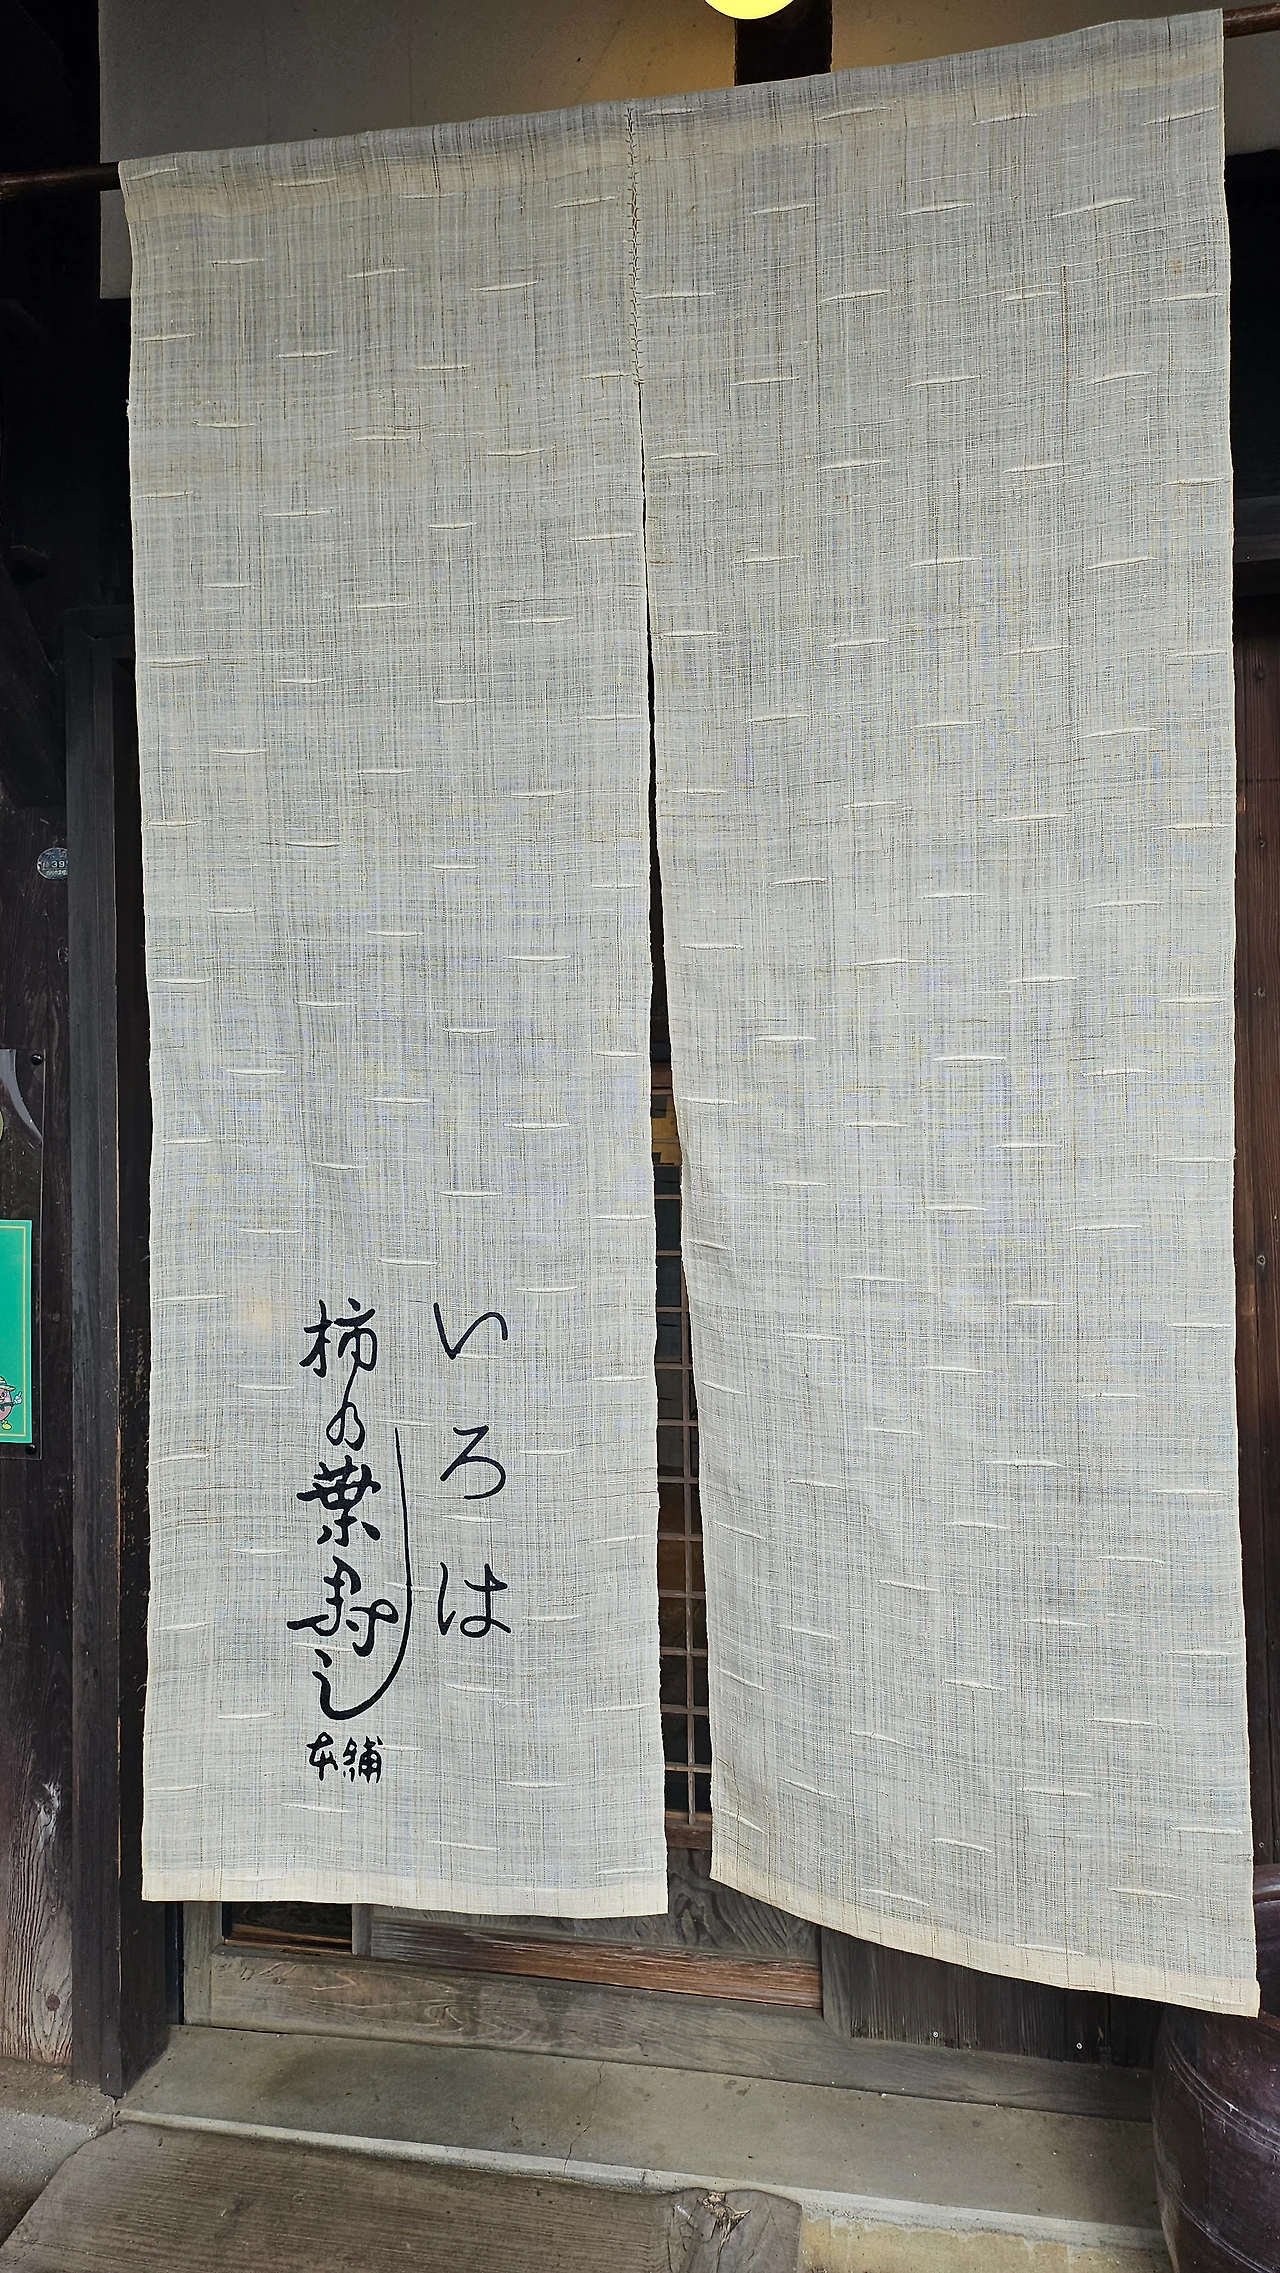 いろは
柿の葉寿し
本舗
39